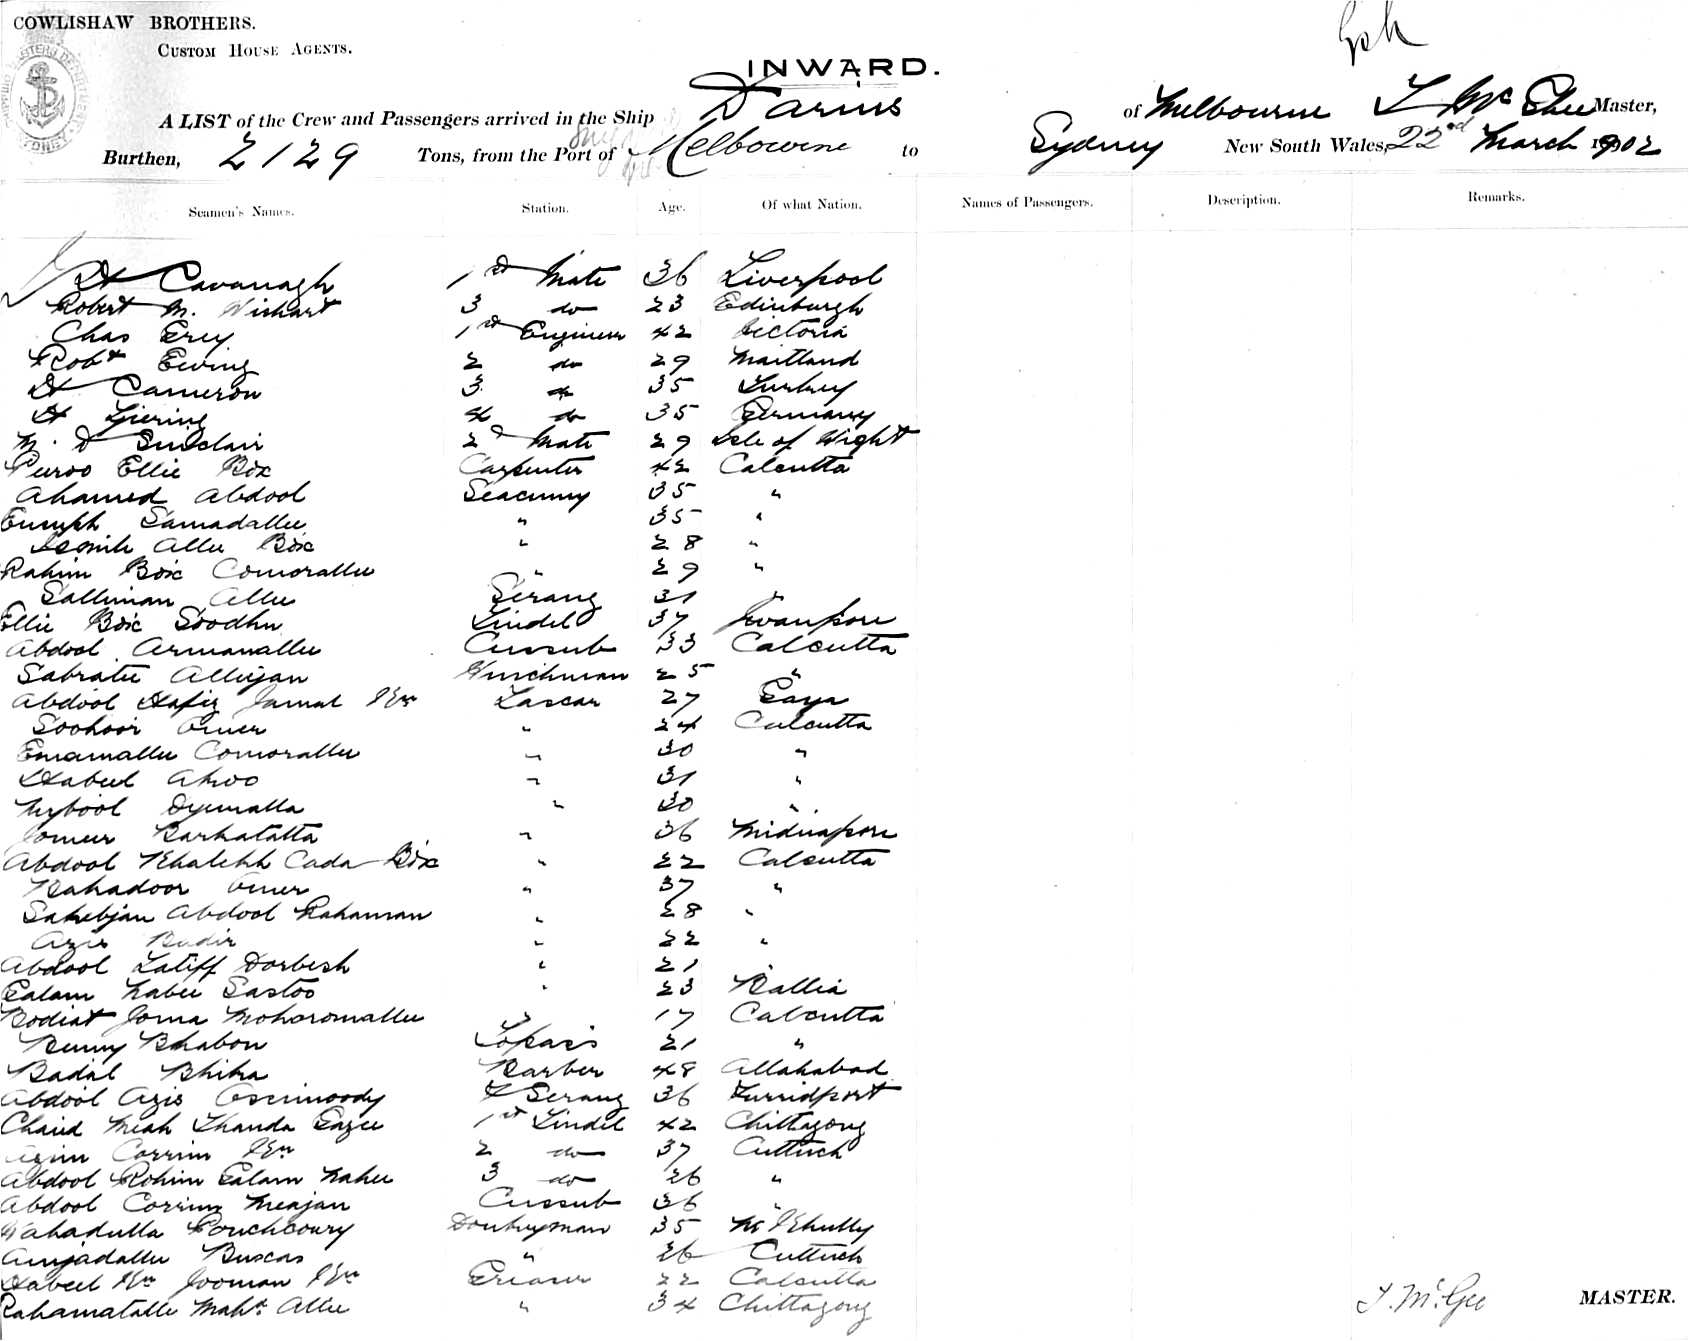 COWLISHAW BROTHERS.
CUSTOM HOUSE AGENTS.
INWARD.
A LIST of the Crew and Passengers arrived in the Ship Darius of Melbourne T Mc Ghee Master,
Burthen, 2129 Tons, from the Port of Melbourne to Sydney New South Wales, 22nd March 1902
Seamen's Names. Station. Age. Of what Nation. Names of Passengers. Description. Remarks.
H Cavanagh 1st Mate 36 Liverpool
Robert M. Wishart 3 do 23 Edinburgh
Chas Erey 1st Engineer 42 Victoria
Robt Ewing 2 do 29 Maitland
H Cameron 3 do 35 Turkey
H Giering 4 do 35 Germany
M. D Sinclair 2d Mate 29 Isle of Wight
Peeroo Ellie Box Carpenter 42 Calcutta
Ahamed Abdool Seacunny 35 "
Samadallee " 35 "
Allee Box " 28 "
Rahim Box Comorallee " 29 "
Salliman Allee Serang 31 "
Ellie Box Soodhu Tindel 37
Abdool Armanallee Cussub 33 Calcutta
Sabratie Alleejan Winchman 25 "
Abdool Hafiz Jamal Lascar 27 Gaya
Soohoor Omer " 24 Calcutta
Emamallee Comorallee " 30 "
Habeel " 31 "
Dyemalla " 30 "
Jomeer Barkatatta " 36 Midnapore
Abdool Khalekh Cada Box " 22 Calcutta
Bahadoor Omer " 37 "
Sahebjan Abdool Rahaman " 28 "
Azis Budir " 22 "
Abdool Latiff Dorbesh " 21 "
Galam Nabee Sastoo " 23 Ballia
Bodiat Joma Mohoromallee " 17 Calcutta
Benny Bhabon Topass 21 "
Badal Bhika Barber 48 Allahabad
Abdool Azis Oseemoody F Serang 36 Furridport
Chand Meah Thanda Gazee 1st Tindel 42 Chittagong
Azim Corrim 2 do 37 Cuttuck
Abdool Rohim Galam Nabee 3 do 26 "
Abdool Corrim Meajan Cussub 36 "
Wahadulla Donkeyman 35
Amjadallee Buscas " 26 Cuttuck
Habeel Jooman Greaser 22 Calcutta
Rahamatalle Mahd Allee " 34 Chittagong
T. McGee MASTER.